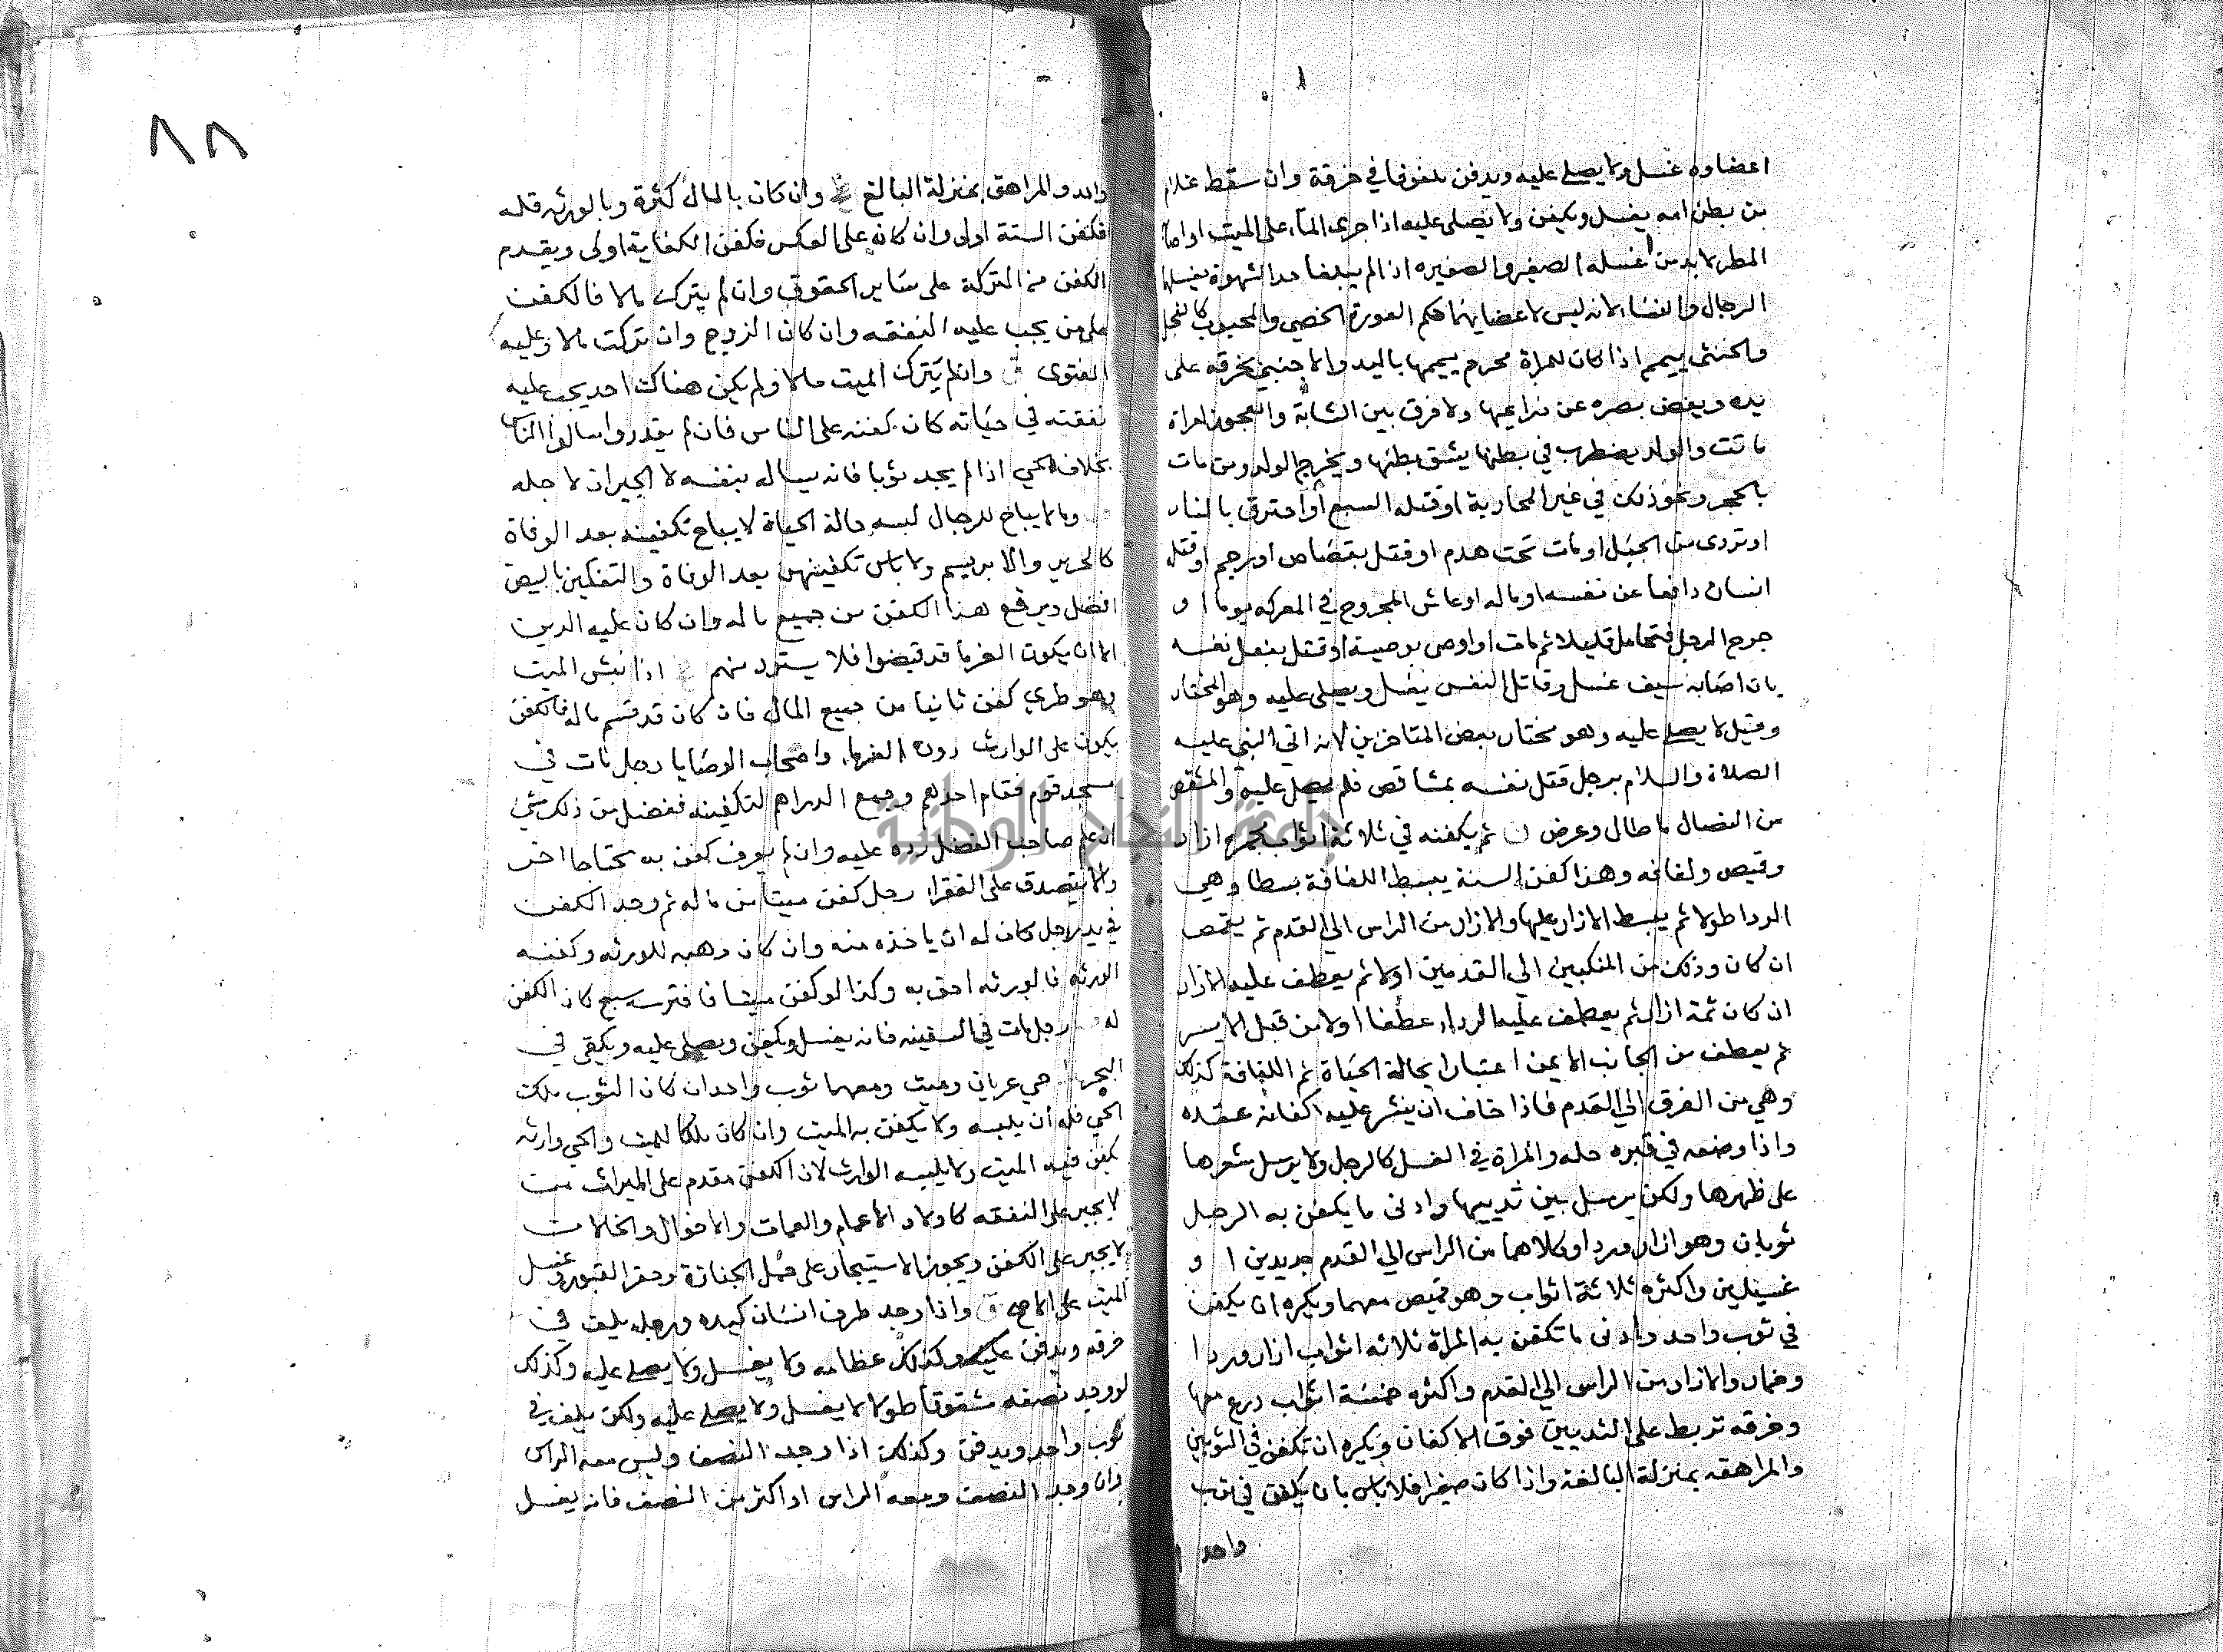 اعضاوه غسل ولا يصلي عليه ويدفن ملفوفا في خرقة وان سقط غلام
من بطن امه يغسل ويكفن ولا يصلى عليه اذا جرى الماء على الميت او اصابه
المطر لا بد من غسله الصغير والصغيره اذا لم يبلغا حد الشهوة يغسلها
الرجال والنسا لانه ليس لاعضايهما حكم العورة الخصي والمجبوب كالفحل
والخنثى ييمم اذا كان للمراة محرم ييممها باليد والاجنبي بخرقه على
يده ويغض بصره عن ذراعيها ولا فرق بين الشابة والعجوز امراة
ماتت والولد يضطرب في بطنها يشق بطنها ويخرج الولد ومن مات
بالحجر ونحو ذلك في غير المحاربة او قتله السبع او احترق بالنار
او تردى من الجبل او مات تحت هدم او قتل بقصاص او برجم او قتله
انسان دافعا عن نفسه او ماله او عاش المجروح في المعركه يوما ا و
جرح الرجل فتحامل قليلا ثم مات او اوصى بوصية او قتل بفعل نفسه
بان اصابه سيف غسل وقاتل النفس يغسل ويصلى عليه وهو المختار
وقيل لا يصلي عليه وهو مختار بعض المتاخرين لانه اتي النبي عليه
الصلاة والسلام برجل قتل نفسه بمشاقص فلم يصل عليه والمشقص
من النصال ما طال وعرض ثم يكفنه في ثلاثة اثواب مجمرة ازار
وقميص ولفافه وهذا كفن السنة يبسط اللفافة بسطا وهي
الردا طولا ثم يبسط الازار عليها والازار من الراس الي القدم ثم يقمص
ان كان وذلك من المنكبين الي القدمين اولا ثم يعطف عليه الازار
ان كان ثمة ازار ثم يعطف عليه الرداء عطفا اولا من قبل الايسر
ثم يعطف من الجانب الايمن اعتبارا بحالة الحياة ثم اللفافة كذلك
وهي من الفرق الي القدم فاذا خاف ان ينشر عليه اكفانه عقده
واذا وضعه في قبره حله والمراة في الغسل كالرجل ولا يرسل شعرها
على ظهرها ولكن يرسل بين ثدييها وادنى ما يكفن به الرجل
ثوبان وهو ازار وردا وكلاهما من الراس الي القدم جديدين ا و
غسيلين واكثره ثلاثة اثواب وهو قميص معهما ويكره ان يكفن
في ثوب واحد وادنى ما تكفن به المراة ثلاثه اثواب ازار وردا
وخمار والازار من الراس الي القدم واكثره خمسة اثواب درع معها
وخرقه تربط على الثديين فوق الاكفان ويكره ان تكفن في الثوبين
والمراهقه بمنزلة البالغة واذا كان صغيرا فلا باس بان يكفن في ثوب
واحد
٨٨
واحد والمراهق بمنزلة البالغ وان كان بالمال كثرة وبالورثه قله
فكفن السنة اولى وان كان على العكس فكفن الكفاية اولى ويقدم
الكفن من التركة على ساير الحقوق وان لم يترك مالا فالكفن
على من يجب عليه النفقه وان كان الزوج وان تركت مالا وعليه
الفتوى وان لم يترك الميت مالا ولم يكن هناك احد يجب عليه
نفقته في حياته كان كفنه على الناس فان لم يقدروا سالوا الناس
بخلاف الحي اذا لم يجد ثوبا فانه يساله بنفسه لا الجيران لاجله
وما لا يباح للرجال لبسه حالة الحياة لا يباح تكفينه بعد الوفاة
كالحرير والابريسم ولا باس تكفينهن بعد الوفاة والتفكين بالبيض
افضل ويرفع هذا الكفن من جميع ماله وان كان عليه الدين
الا ان يكون الغرما قد قبضوا فلا يسترد منهم اذا نبش الميت
وهو طري كفن ثانيا من جميع المال فان كان قد قسم ماله فالكفن
يكون على الوارث دون الغرما واصحاب الوصايا رجل مات في
مسجد قوم فقام احدهم وجمع الدراهم لتكفينه ففضل من ذلك شي
ان علم صاحب الفضل رده عليه وان لم يعرف كفن به محتاجا اخر
والا يتصدق على الفقرا رجل كفن ميتا من ماله ثم وجد الكفن
في يد رجل كان له ان ياخذه منه وان كان وهبه للورثه وكفنه
الورثه فالورثه احق به وكذا لو كفن ميتا فافترسه سبع كان الكفن
له رجل مات في السفينه فانه يغسل ويكفن ويصلى عليه ويلقي في
البحر حي عريان وميت ومعهما ثوب واحد ان كان الثوب ملك
الحي فله ان يلبسه ولا يكفن به الميت وان كان ملكا للميت والحي وارثه
يكفن فيه الميت ولا يلبسه الوارث لان الكفن مقدم على الميراث من
لا يجبر على النفقه كاولاد الاعمام والعمات والاخوال والخالات
لا يجبر على الكفن ويجوز الاستيجار على حمل الجنازة وحفر القبور وغسل
الميت على الاصح واذا وجد طرف انسان كيده ورجله يلف في
خرقه ويدفن وكذلك عظامه ولا يغسل ولا يصلي عليه وكذلك
لو وجد نصفه مشقوقا طولا لا يغسل ولا يصلي عليه ولكن يلف في
ثوب واحد ويدفن وكذلك اذا وجد النصف وليس معه الراس
وان وجد النصف ومعه الراس او اكثر من النصف فانه يغسل
جامعة النجاح الوطنية